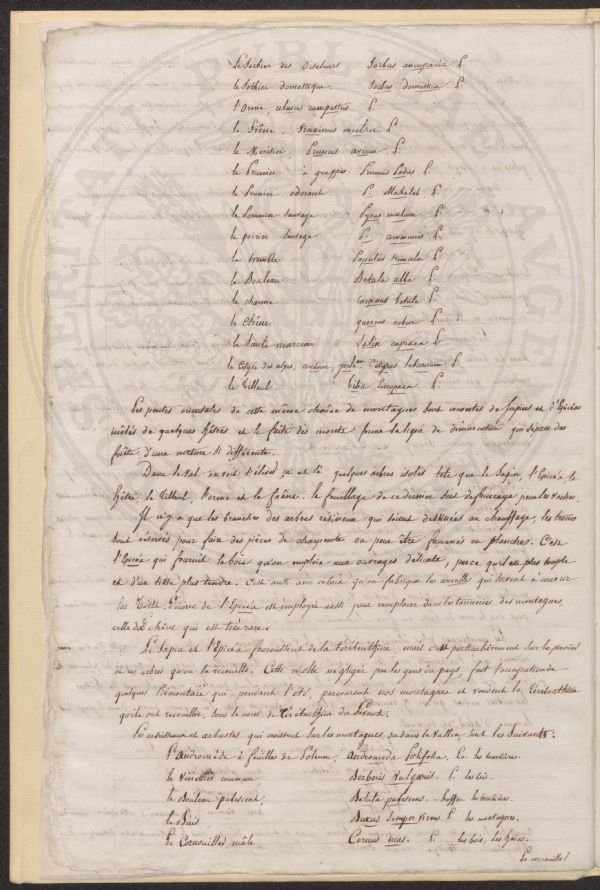 Le Sorbier des Oiseleurs Sorbus aucuparia L.
le Sorbier domestique Sorbus domestica L.
l'Orme, ulmus campestris L
le Frêne, Fraxinus excelsior L.
le Merisier, Prunus avium L.
le Prunier à grappes Prunus Padus L.
le Prunier odorant P. Mahaleb L.
le Pommier sauvage Pyrus malum L.
le poirier sauvage P. communis L.
le tremble Populus tremula L.
le Bouleau Betula alba L.
le charme carpinus betula L.
le Chêne quercus robur L.
le Saule-marceau Salix capraea L
le Citise des alpes, Citisus laburnum L.
le Tilleul Tilia Europaea L.
Les pentes orientales de cette même chaîne de montagnes sont couvertes de Sapins et d'Epicéas
mêlés de quelques hêtres et le faîte des monts forme la ligne de démarcation qui sépare des
forêts d'une nature si différente.
Dans le Val on voit s'élever çà et là quelques arbres isolés tels que le Sapin, l'Epicéa, le
hêtre, le Tilleul, l'orme et le frêne. le feuillage de ce dernier sert de fourrage pour les vaches.
Il n'y a que les branches des arbres résineux qui soient destinées au chauffage, les troncs
sont réservés pour faire des pièces de charpente ou pour être en planches. C'est
l'Epicéa qui fournit le bois qu'on emploie aux ouvrages délicats, parce qu'il est plus souple
et d'un tissu plus tendre. C'est aussi avec ce bois qu'on fabrique les ancelles qui servent à couvrir
les toits. L'écorce de l'Epicéa est employée aussi pour remplacer dans les tanneries des montagnes,
celle de chêne qui est très rare.
Le Sapin et l'Epicéa fournissent de la Térébenthine, mais c'est particulièrement sur le premier
de ces arbres qu'on la recueille. Cette récolte négligée par les gens du pays, fait l'occupation de
quelques Piémontais qui, pendant l'été, parcourent nos montagnes et vendent la térébenthine
qu'ils ont recueillie, sous le nom de Térébenthine du Levant.
Les arbrisseaux et arbustes qui croissent sur les montagnes ou dans le Vallon, sont les Suivants:
l'Andromède à feuilles de Polium, Andromeda Polifolia, Lin. les tourbières.
le Vinettier commun Berberis Vulgaris. L. les bois.
le Bouleau pubescent, Betula pubescens. hoffm. les tourbières.
le Buis Buxus Semper virens L les montagnes.
Le Cornouiller mâle Cornus mas. L. les bois, les haies.
Le cornouiller